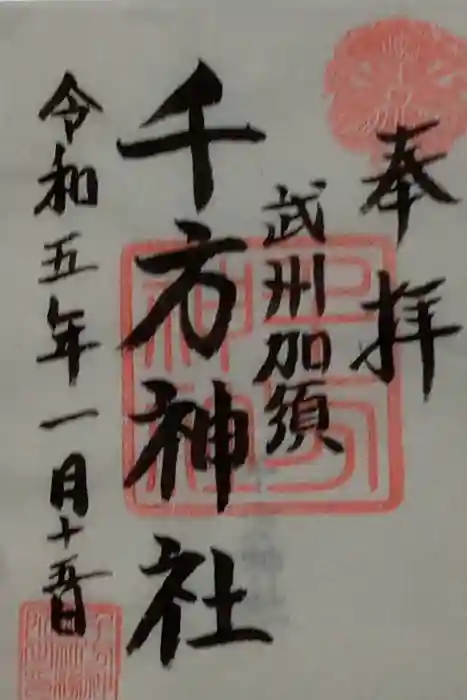 奉拝
武州加須
千方神社
令和五年一月十五日